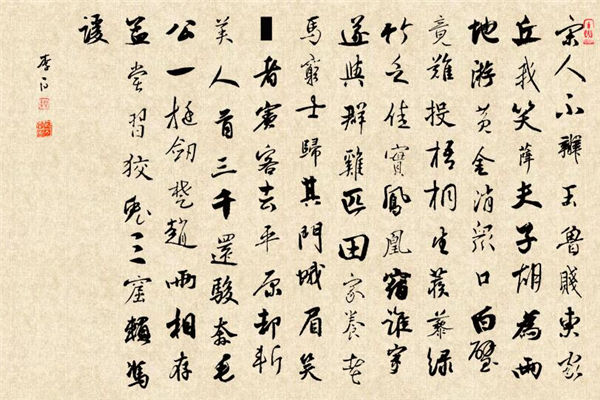 宋人不辨玉魯賤東家
丘我笑薛夫子胡為兩
地游黃金消眾口白璧
竟難投梧桐生蒺藜綠
竹乏佳實鳳凰宿誰家
遂與群雞匹田家養老
馬窮士歸其門城眉笑
者賓客去平原却斬
美人首三千還駿奔毛
公一挺劍楚趙兩相存
孟嘗習狡兔三窟賴馮
諼
李白